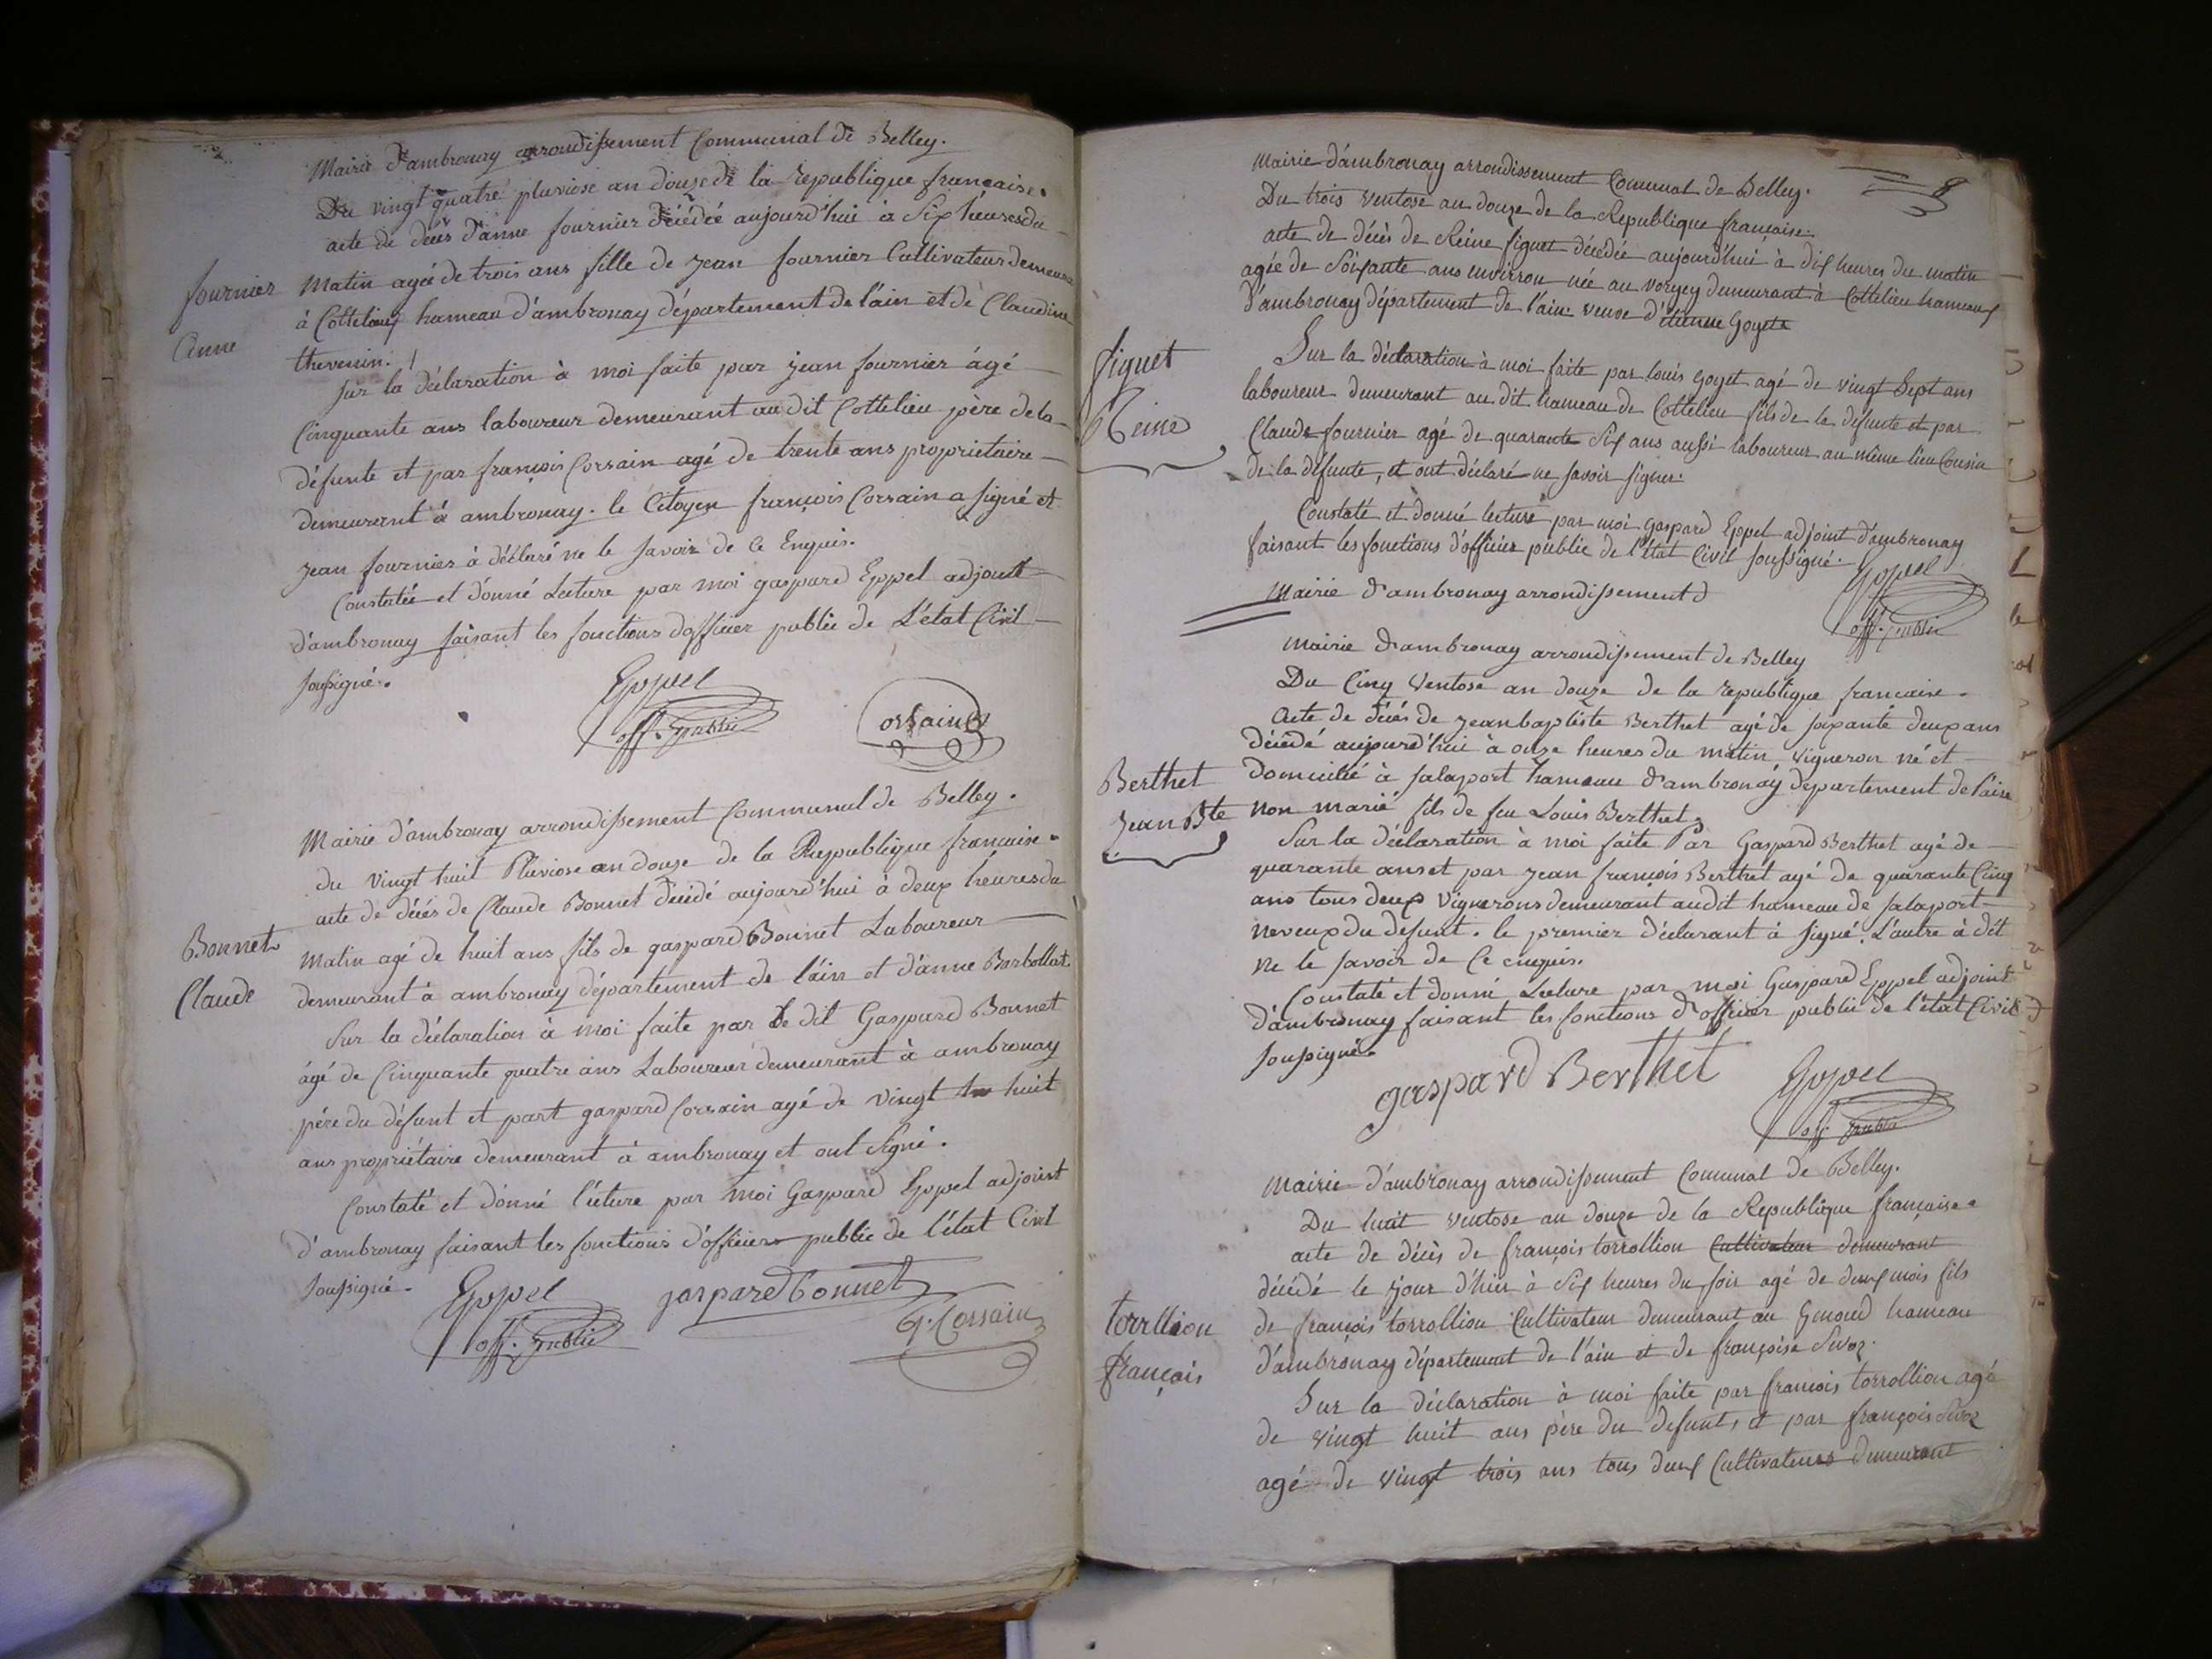 Mairie d'ambronay arrondissement Communal de Belley.
Du vingt quatre pluviose an douze de la republique française.
acte de décès d'anne fournier décédée aujourd'hui à Six heures du
fournier
Matin agée de trois ans fille de jean fournier Cultivateur demeurant
Anne
à Cottelieu hameau d'ambronay département de l'ain et de Claudine
thevenin.
Sur la déclaration à moi faite par jean fournier âgé
Cinquante ans laboureur demeurant au dit Cottelieu père de la
défunte et par françois Corsain agé de trente ans proprietaire
demeurant à ambronay. le Citoyen françois Corsain a signé et
jean fournier à déclaré ne le savoir de Ce Enquis.
Constatée et donné Lecture par moi gaspard Eppel adjoint
d'ambronay faisant les fonctions d'officier public de L'état Civil
soussigné.
Eppel
off. public
Corsain
Mairie d'ambronay arrondissement Communal de Belley.
du vingt huit Pluviose an douze de la Republique française.
acte de décès de Claude Bonnet décédé aujourd'hui à deux heures du
Bonnet
Matin agé de huit ans fils de gaspard Bonnet Laboureur
Claude
demeurant à ambronay département de l'ain et d'anne Barbollat.
Sur la déclaration à moi faite par Le dit Gaspard Bonnet
âgé de Cinquante quatre ans Laboureur demeurant à ambronay
père du défunt et part gaspard Corsain agé de vingt huit
ans propriétaire demeurant à ambronay et ont signé.
Constaté et donné lécture par moi Gaspard Eppel adjoint
d'ambronay faisant les fonctions d'officier public de l'état Civil
soussigné.
Eppel
off. public
gaspard bonnet
G. Corsain
8
Mairie d'ambronay arrondissement Communal de Belley.
Du trois ventose an douze de la Republique française.
acte de décès de Reine figuet décédée aujourd'hui à dix heures du matin
agée de Soixante ans environ née au vorgey demeurant à Cottelieu hameau
d'ambronay département de l'ain veuve d'étienne Goyet
figuet
Reine
Sur la déclaration à moi faite par louis goyet agé de vingt Sept ans
laboureur demeurant au dit hameau de Cottelieu fils de la défunte et par
Claude fournier agé de quarante Six ans aussi laboureur au même lieu Cousin
de la défunte, et ont déclaré ne savoir signer.
Constaté et donné lecture par moi gaspard Eppel adjoint d'ambronay
faisant les fonctions d'officier public de l'état Civil soussigné.
Eppel
off. public
Mairie d'ambronay arrondissement d
Mairie d'ambronay arrondissement de Belley
Du Cinq Ventose an douze de la republique française.
Acte de décès de jean baptiste Berthet agé de soixante deux ans
décédé aujourd'hui à onze heures du matin, vigneron né et
Berthet
domicilié à salaport hameau d'ambronay département de l'ain
Jean Bte
non marié fils de feu Louis Berthet,
Sur la déclaration à moi faite Par Gaspard Berthet agé de
quarante ans et par jean françois Berthet agé de quarante Cinq
ans tous deux Vignerons demeurant audit hameau de salaport
neveux du defunt. le premier déclarant à signé. L'autre à dit
ne le savoir de Ce enquis.
Constaté et donné Lecture par moi Gaspard Eppel adjoint
d'ambronay faisant les fonctions d'officier public de l'état Civil
soussigné.
gaspard Berthet
Eppel
off. public
Mairie d'ambronay arrondissement Comunal de Belley.
Du huit ventose an douze de la Republique française.
acte de décès de françois torrollion Cultivateur demeurant
décédé le jour d'hier à Six heures du soir agé de deux mois fils
torrllion
de françois torrollion Cultivateur demeurant au Genoud hameau
françois
d'ambronay département de l'ain et de françoise Sivoz.
Sur la déclaration à moi faite par françois torrollion agé
de vingt huit ans père du defunt, et par françois Sivoz
agé de vingt trois ans tous deux Cultivateurs demeurant